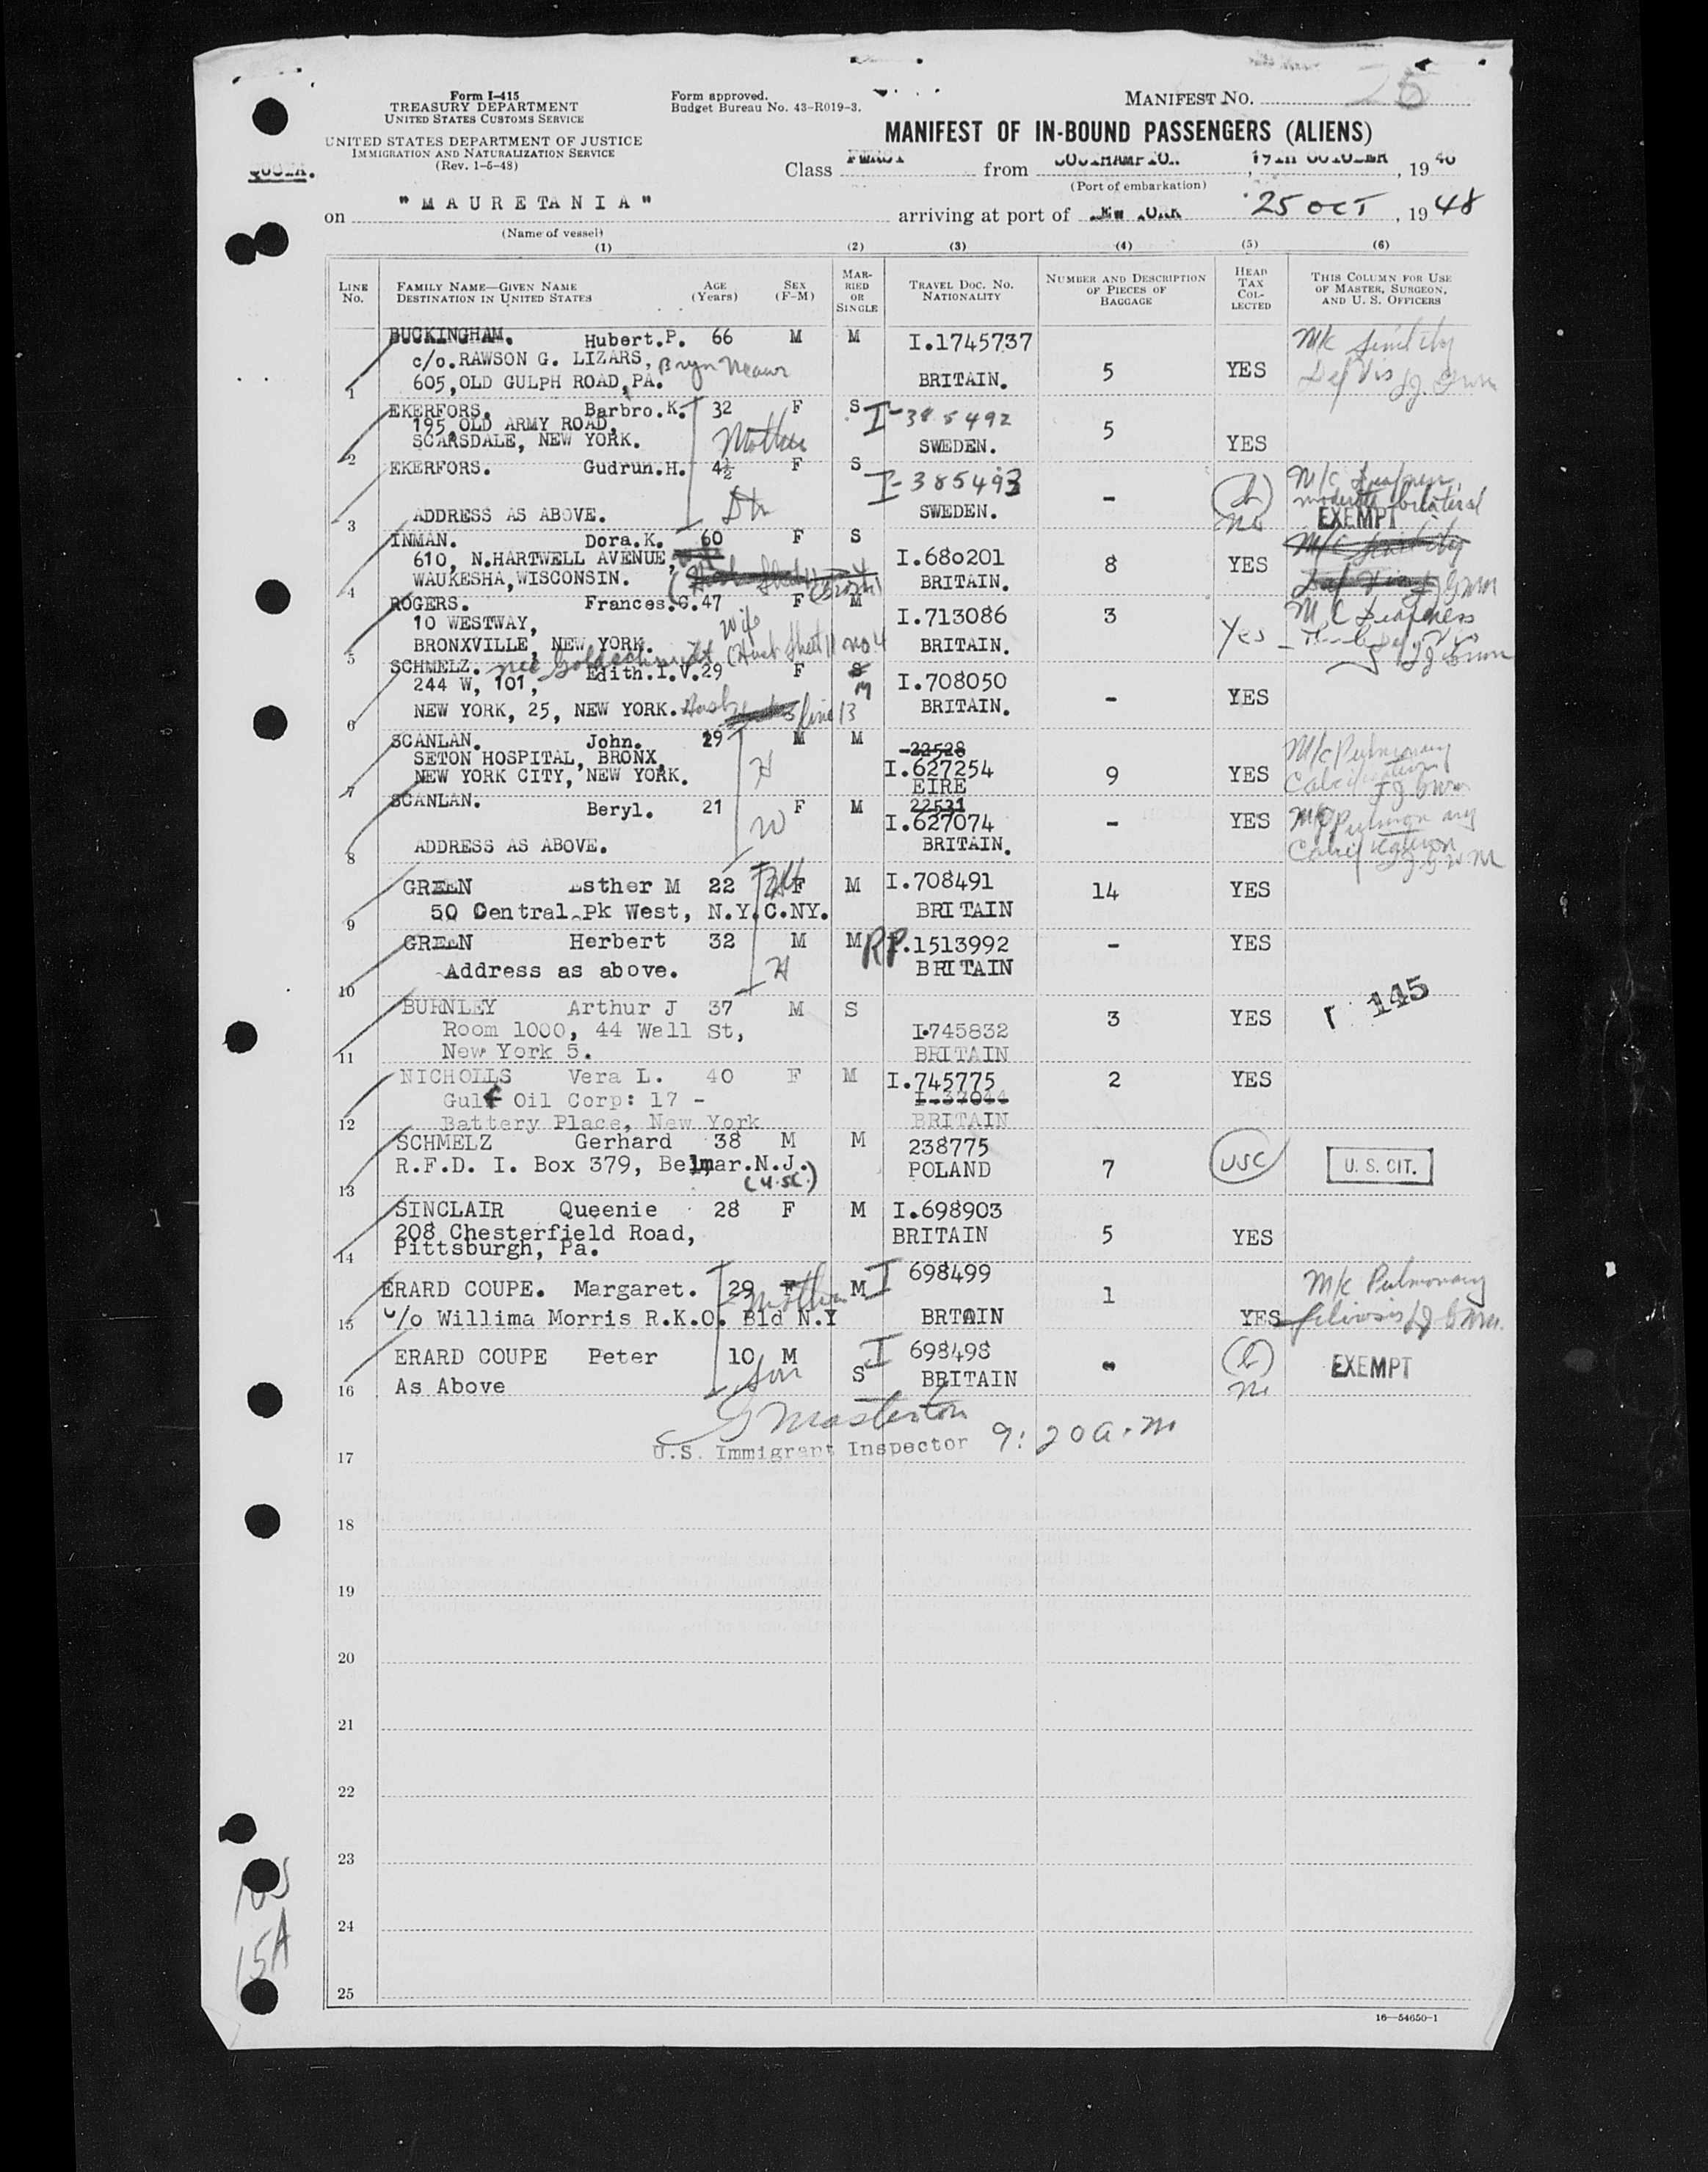 Form I-415
TREASURY DEPARTMENT
UNITED STATES CUSTOMS SERVICE
UNITED STATES DEPARTMENT OF JUSTICE
IMMIGRATION AND NATURALIZATION SERVICE
(Rev. 1-6-48)
Form approved.
Budget Bureau No. 43-R019-3.
MANIFEST NO. 25
MANIFEST OF IN-BOUND PASSENGERS (ALIENS)
QUOTA.
Class FIRST from SOUTHAMPTON, 19TH OCTOBER, 1948
(Port of embarkation)
on "MAURETANIA" arriving at port of NEW YORK 25 OCT, 1948
(Name of vessel)
(1) (2) (3) (4) (5) (6)
LINE NO. FAMILY NAME—GIVEN NAME DESTINATION IN UNITED STATES AGE (Years) SEX (F-M) MARRIED OR SINGLE TRAVEL DOC. NO. NATIONALITY NUMBER AND DESCRIPTION OF PIECES OF BAGGAGE HEAD TAX COLLECTED THIS COLUMN FOR USE OF MASTER, SURGEON, AND U. S. OFFICERS
BUCKINGHAM. Hubert.P. 66 M M I.1745737 M/c Senility
c/o.RAWSON G. LIZARS, Bryn Mawr
1 605,OLD GULPH ROAD,PA. BRITAIN. 5 YES Def Vis
EKERFORS. Barbro.K. 32 F S I-385492
195,OLD ARMY ROAD, Mother 5
2 SCARSDALE, NEW YORK. SWEDEN. YES
EKERFORS. Gudrun.H. 4½ F S I-385493 M/c Deafness,
moderate bilateral
3 ADDRESS AS ABOVE. Dtr SWEDEN. - No EXEMPT
INMAN. Dora.K. 60 F S M/c Senility
610, N.HARTWELL AVENUE, I.680201 8 YES
4 WAUKESHA,WISCONSIN. BRITAIN. Def Vis
ROGERS. Frances.G. 47 F M I.713086 3 M/C Deafness
10 WESTWAY, Wife Yes
5 BRONXVILLE, NEW YORK. (Husb Sheet 11 no 4 BRITAIN.
SCHMELZ. née Goldschmidt Edith.I.V. 29 F S M I.708050
244 W, 101, - YES
6 NEW YORK, 25, NEW YORK. Husb line 13 BRITAIN.
SCANLAN. John. 29 M M 22528 M/c Pulmonary
SETON HOSPITAL, BRONX, H I.627254 9 YES Calcification
7 NEW YORK CITY, NEW YORK. EIRE
SCANLAN. Beryl. 21 F M 22531
W I.627074 - YES M/c Pulmonary
8 ADDRESS AS ABOVE. BRITAIN. Calcification
GREEN Esther M 22 W F M I.708491 14 YES
9 50 Central Pk West, N.Y.C.NY. BRITAIN
GREEN Herbert 32 M M RP.1513992 - YES
10 Address as above. H BRITAIN
145
BURNLEY Arthur J 37 M S
Room 1000, 44 Wall St, I.745832 3 YES
11 New York 5. BRITAIN
NICHOLLS Vera L. 40 F M I.745775 2 YES
Gulf Oil Corp: 17 - I.37044
12 Battery Place, New York BRITAIN
SCHMELZ Gerhard 38 M M 238775
R.F.D. I. Box 379, Belmar.N.J. POLAND 7 USC U. S. CIT.
13 (U.S.C.)
SINCLAIR Queenie 28 F M I.698903
208 Chesterfield Road, BRITAIN 5 YES
14 Pittsburgh, Pa.
ERARD COUPE. Margaret. 29 F M I 698499 1 M/c Pulmonary
Mother
15 c/o Willima Morris R.K.O. Bld N.Y BRTAIN YES
ERARD COUPE Peter 10 M I 698498
16 As Above Son S BRITAIN - No EXEMPT
G Masterton
17 U.S. Immigrant Inspector 9:20 a.m
18
19
20
21
22
23
24
25
15A
16—54650-1